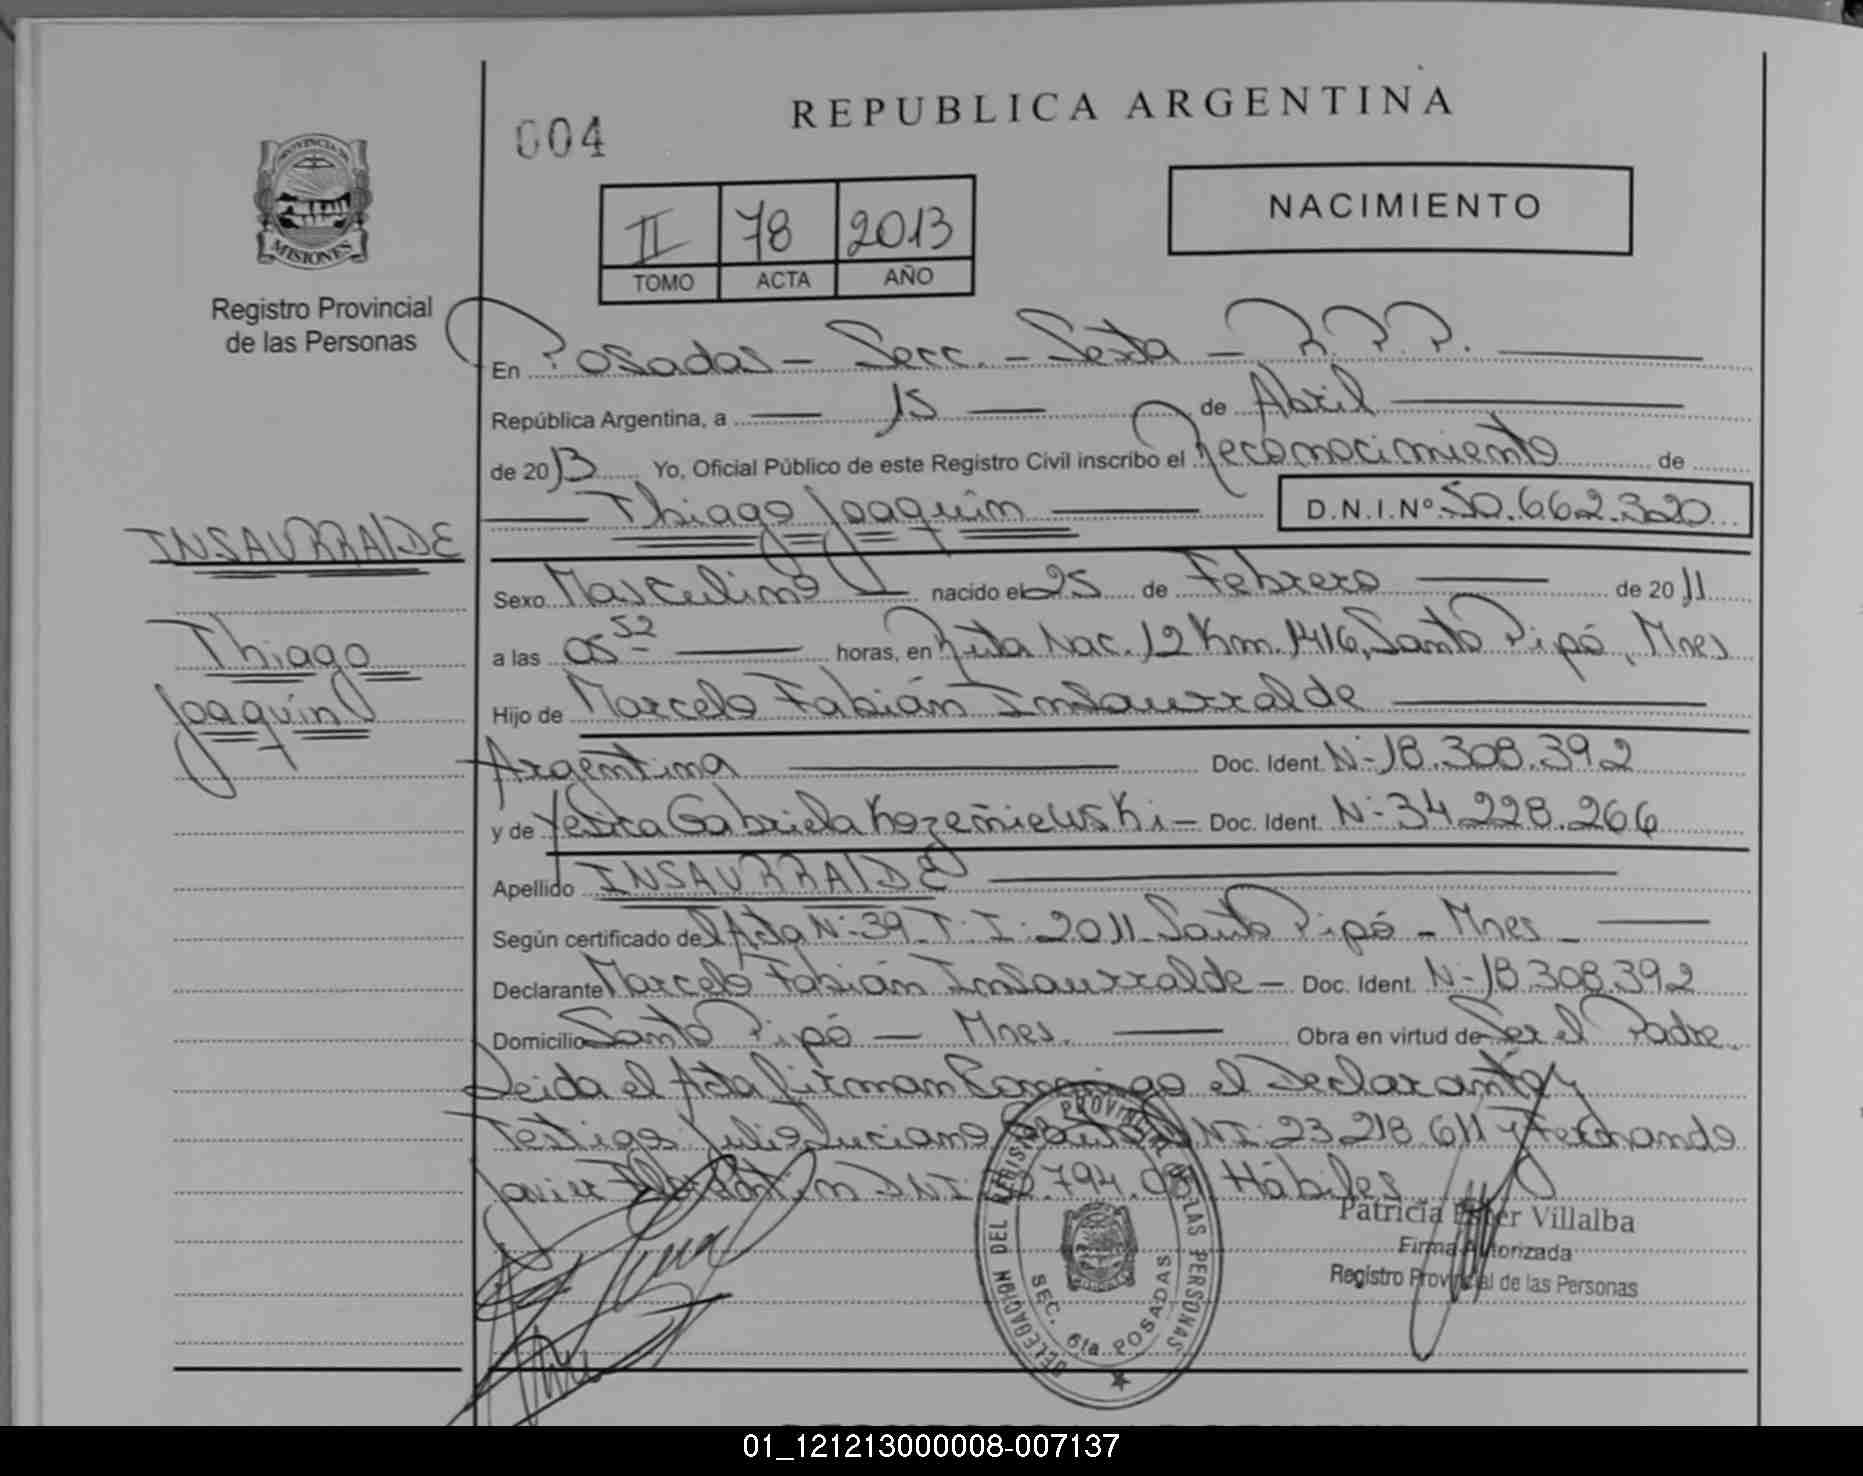 004
REPUBLICA ARGENTINA
PROVINCIA DE
MISIONES
Registro Provincial
de las Personas
II 78 2013
TOMO ACTA AÑO
NACIMIENTO
En Posadas - Secc. - Sexta - R.P.P.
República Argentina, a 15 de Abril
de 2013 Yo, Oficial Público de este Registro Civil inscribo el Reconocimiento de
Thiago Joaquín D.N.I.Nº 50.662.320
INSAURRALDE
Thiago
Joaquín
Sexo Masculino nacido el 25 de Febrero de 2011
a las 05 52 horas, en Ruta Nac. 12 Km. 1416, Santo Pipó, Mnes
Hijo de Marcelo Fabián Insaurralde
Argentina Doc. Ident. N- 18.308.392
y de Yesica Gabriela Kozeñiewski - Doc. Ident. N- 34.228.266
Apellido INSAURRALDE
Según certificado del Acta N- 39 - T: I: 2011 - Santo Pipó - Mnes -
Declarante Marcelo Fabián Insaurralde - Doc. Ident. N- 18.308.392
Domicilio Santo Pipó - Mnes. Obra en virtud de Ser el Padre.
Leida el Acta firman Conmigo el Declarante y
Testigos: Julio Luciano DNI: 23.218.611 y Fernando
Javier DNI: .794. Hábiles
DELEGACION DEL REGISTRO PROVINCIAL DE LAS PERSONAS
SEC. 6ta POSADAS
Patricia Ester Villalba
Firma Autorizada
Registro Provincial de las Personas
01_121213000008-007137